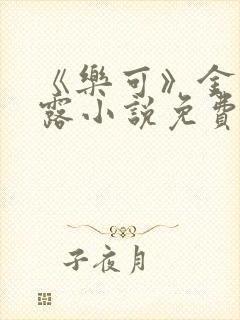 《樂可》金
露小說免費
子夜月